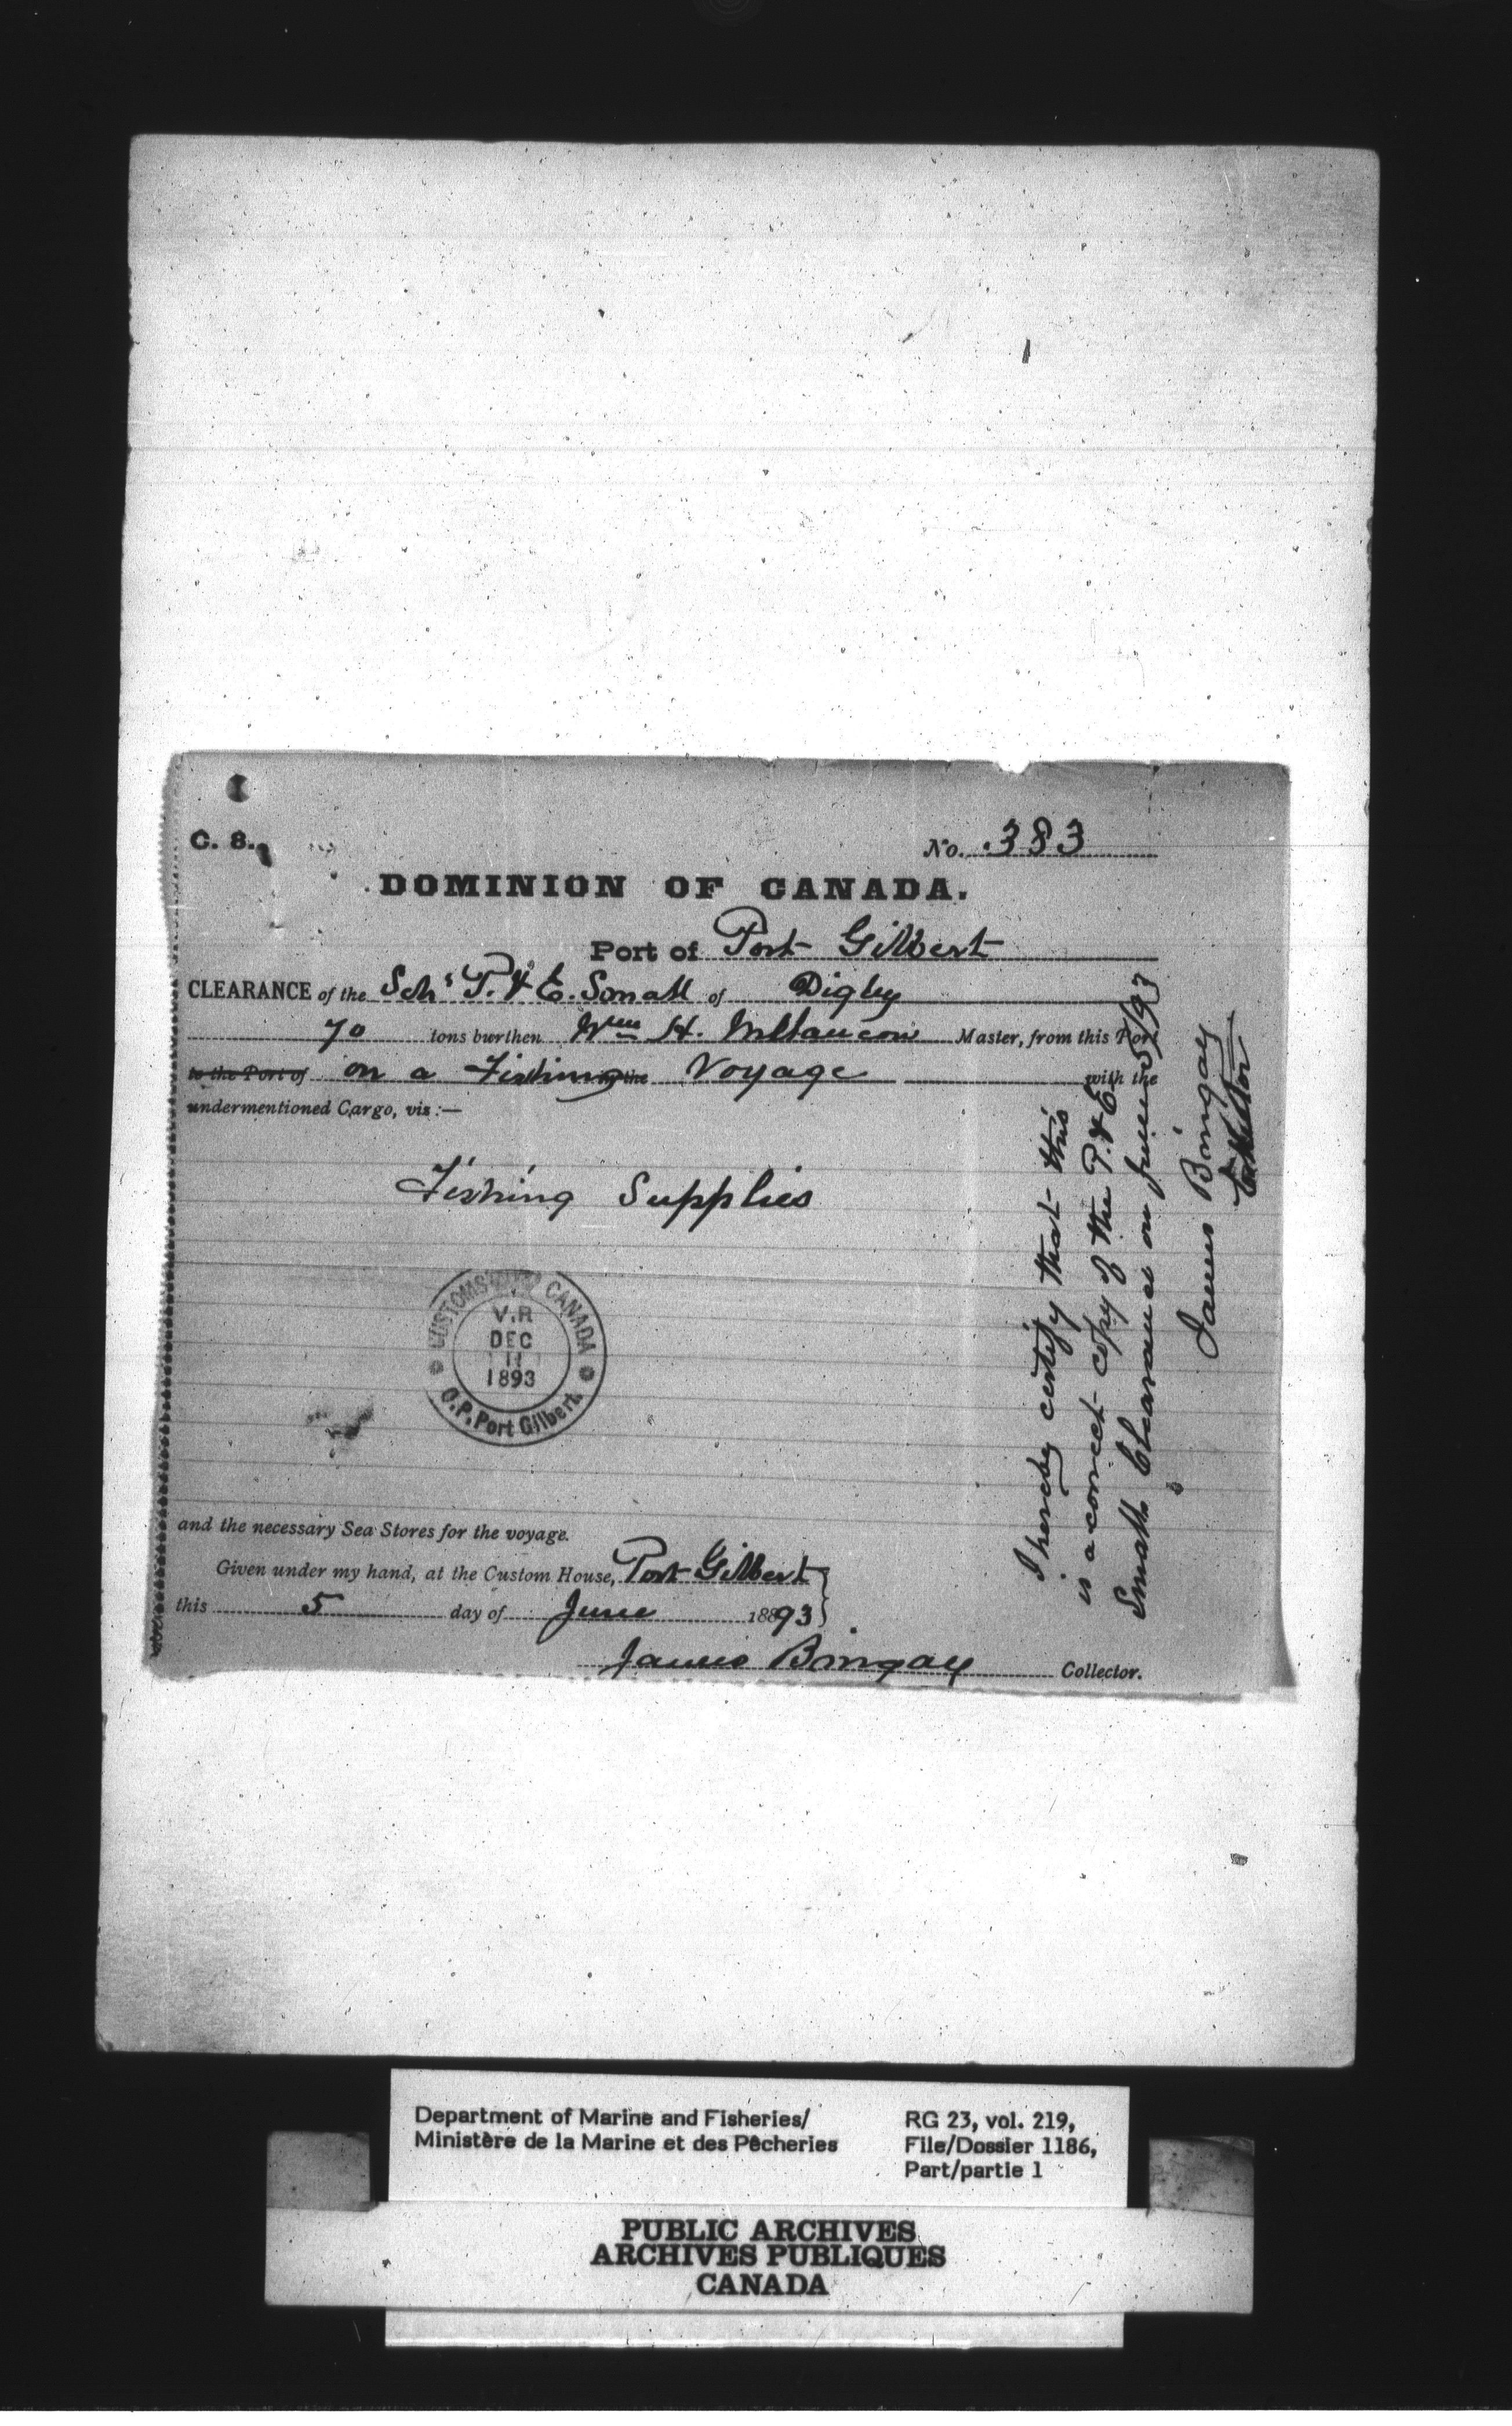 C. 8.
No. 383
DOMINION OF CANADA.
Port of Port Gilbert
CLEARANCE of the Schr P. & E. Small of Digby
70 tons burthen Wm H. Master, from this Port
to the Port of on a Fishing in the Voyage with the
undermentioned Cargo, viz:—
Fishing Supplies
CUSTOMS CANADA
V.R
DEC
11
1893
O.P. Port Gilbert
and the necessary Sea Stores for the voyage.
Given under my hand, at the Custom House, Port Gilbert
this 5 day of June 1893
James Bingay Collector.
I hereby certify that this
is a correct copy of the P. & E.
Small Clearance on June 5/93
James Bingay
Collector
Department of Marine and Fisheries/
Ministère de la Marine et des Pêcheries
RG 23, vol. 219,
File/Dossier 1186,
Part/partie 1
PUBLIC ARCHIVES
ARCHIVES PUBLIQUES
CANADA